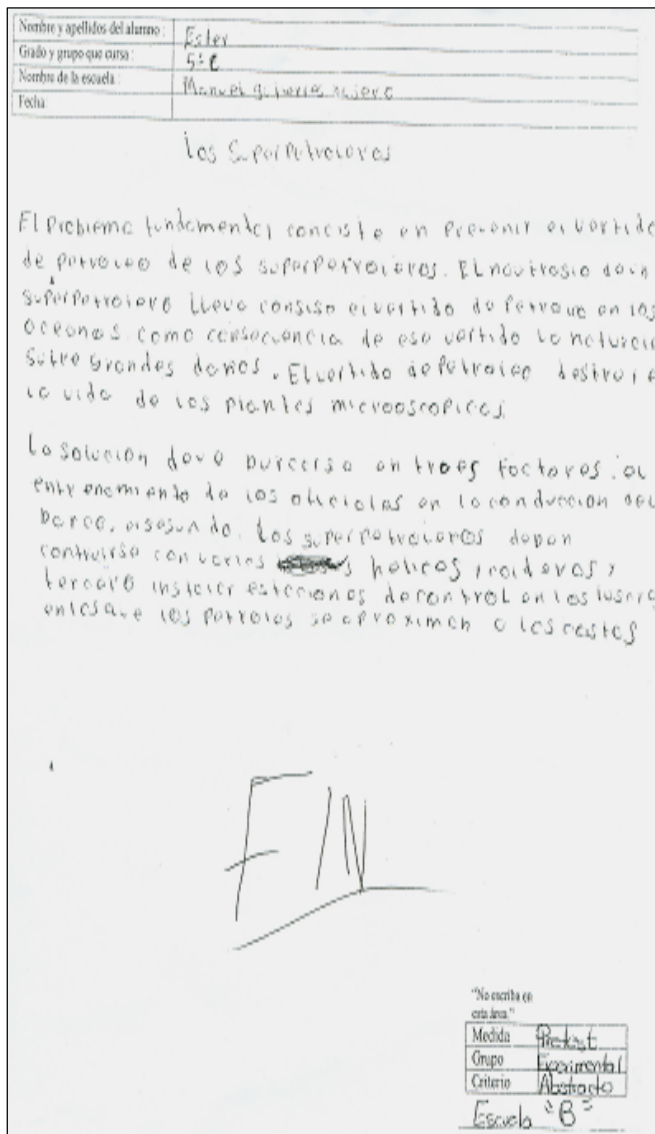 Nombre y apellidos del alumno : Ester
Grado y grupo que cursa : 5º C
Nombre de la escuela : Manuel
Fecha:
los Superpetroleros
El Problema fundamental conciste en Prevenir el vertido
de petroleo de los superpetroleros. El
superpetrolero llevo consigo el vertido de en los
oceanos como consecuencia de ese vertido la
sufre grandes daños. El vertido de Petroleo destrui e
la vida de las plantas microoscopicas.
La solucion deve en trees factores. el
entrenamiento de los en la conduccion del
barco, los superpetroleros deven
contruirse con varias helices y
tercero instalar estaciones de control en los
en los que los se aproximan a las costas
FIN
"No escriba en
esta área."
Medida Pretest
Grupo Experimental
Criterio Abstracto
Escuela "B"